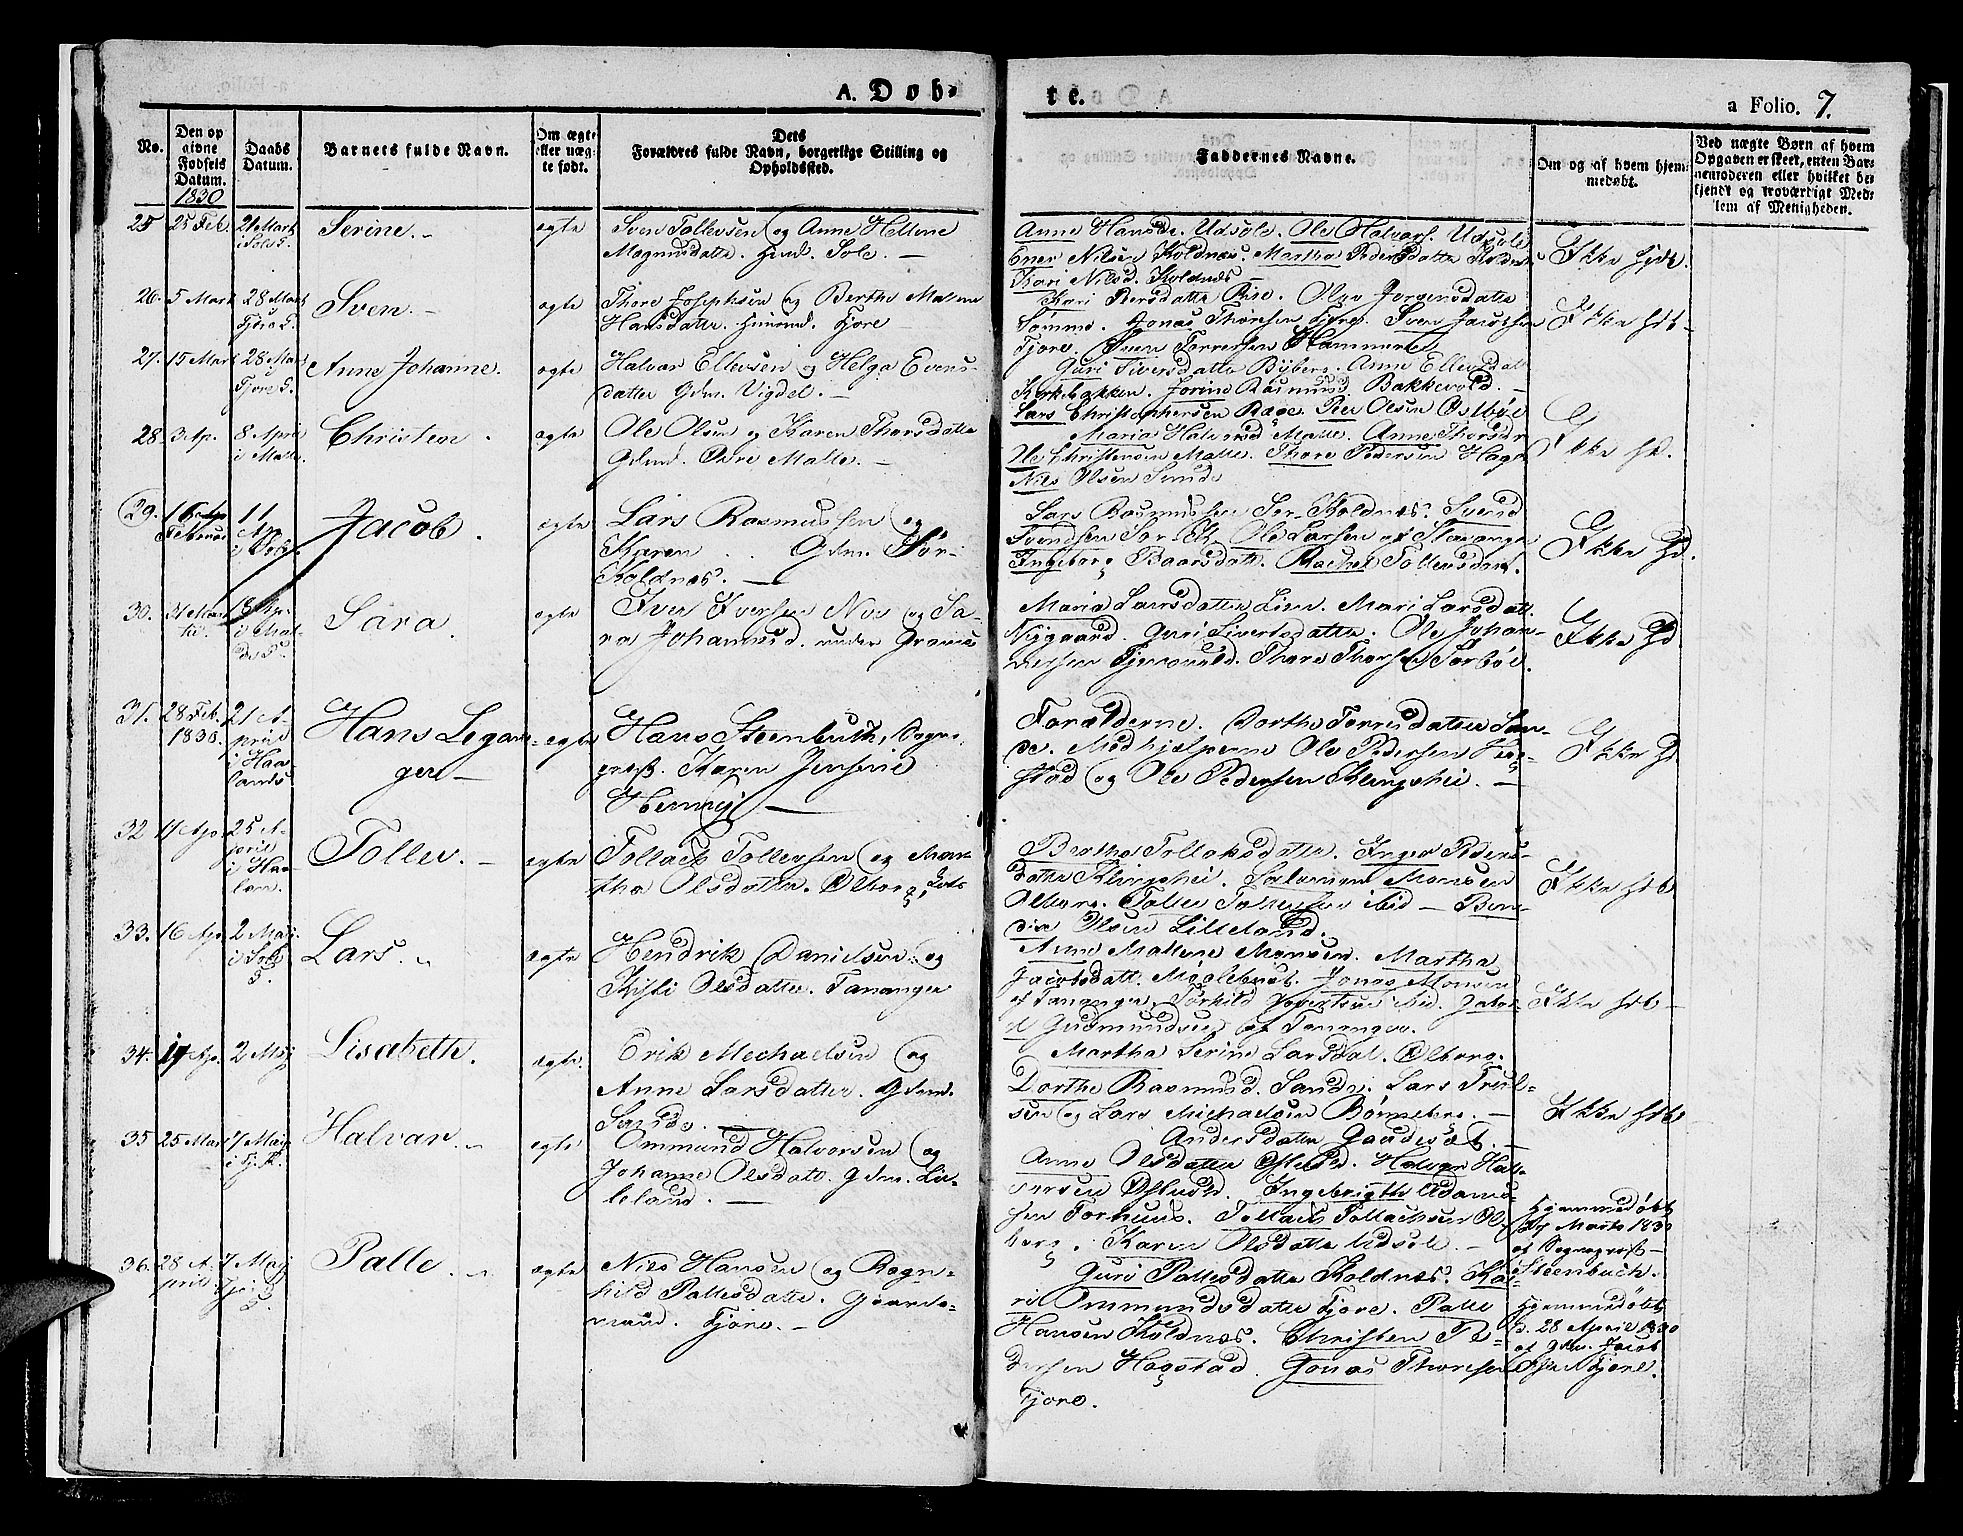 A. Døb-
te.
a Folio. 7.
No.
Den op
givne
Fødsels
Datum.
1830
Daabs
Datum.
Barnets fulde Navn.
Om ægte
eller uæg-
te født.
Dets
Forældres fulde Navn, borgerlige Stilling og
Opholdssted.
Faddernes Navne.
Om og af hvem hjem-
medøbt.
Ved uægte Børn af hvem
Opgaven er skeet, enten Bar-
nemoderen eller hvilket be-
kjendt og troværdigt Med-
lem af Menigheden.
25 25 Feb. 21 Marts
Serine.
ægte
Sven Tollevsen og Anne Hellene
Magnusdatter. Sole.
Anne Hansd. Udsole. Ole Halvors. Udsole
Ener Nilsen Koldnæs. Martha Pedersdatter Koldnæs
Kari Nilsd. Koldnæs
Ikke hjdt.
26. 5 Mart 28 Mart
Sven.
ægte
Thore Josephsen og Berthe Malene
Hansdatter. Fjore
Kari Persdatter Risе. Olga Jørgensdatter
Sømme. Jonas Thoresen Fjore. Sven Jacobsen
Fjore. Sven Torresen Hammeren
Ikke hdt.
27. 15 Mart 28 Mart
Fjore
Anne Johanne.
ægte
Halvar Ellevsen og Helga Evens-
datter Gdm. Vigdel.
Guri Siversdatter Byberg. Anne Ellevsdat
Kirkebakken. Jorine Rasmusd. Bakkevold.
Lars Christophersen Ræge. Peer Olsen Østbøe
28. 3 Ap. 8 April
i Malle
Christen.
ægte
Ole Olsen og Karen Thorsdatter
Gdmd. Øvre Malle.
Maria Halvorsd Malle. Anne Thorsdr
Ole Christensen Malle. Thore Pedersen Haga
Nils Olsen Sunde
Ikke hd.
29. 16
Februar
11
Jacob.
ægte
Lars Rasmussen og
Karen . . Gdm. Sør-
Koldnæs.
Lars Rasmussen Sør-Koldnæs. Svend
Svendsen Sør-K. Ole Larsen af Stavanger
Ingeborg Baarsdatt. Rachel Tollevsdatt.
Ikke hd.
30. 31 Mar-
tii.
18 Ap.
Sara.
ægte
Iver Iversen Nos og Sa-
ra Johannesd.
Maria Larsdatter Lien. Mari Larsdatt.
Nygaard. Guri Sivertsdatter. Ole Johan-
nessen Fjermestad. Thore Thorsen Sørbøe.
Ikke hd
31. 28 Feb.
1830.
21 A-
pril
i Haa-
lands
Hans Legan-
ger
ægte
Hans Steenbuch, Sogne-
præst. Karen Jensine
Forælderne. Dorthe Torresdatter San-
de. Medhjelperne Ole Pedersen
stad og Ole Pedersen Klingshei.
Ikke hd
32 11 Ap. 25 A-
pril
i Haa-
land.
Tollev.
ægte
Tollach Tollevsen og Mar-
tha Olsdatter. Olberg
Berthe Tollaksdatter. Inger Peders-
datter Klingshei. Salamon Monsen
Olberg. Tollev Tollevsen ibid - Ben-
Olsen Lilleland.
Ikke hdt
33. 16 Ap. 2 Mai.
i Sole
Lars.
ægte
Hendrik Danielsen og
Kisti Olsdatter. Tananger
Anne Mallene Monsen. Martha
Jacobsdatt. Møglebust. Jonas Monsen
af Tananger. Torkild Govertsen ibid. Jaco-
b Gudmundsen af Tananger.
Ikke hdt
34. 17 Ap. 2 Maj
Lisabeth.
ægte.
Erik Mechaelsen og
Anne Larsdatter. Gdmd.
Sande.
Martha Serine Larsdat. Olberg.
Dorthe Rasmusd. Sande. Lars Truls-
sen og Lars Michaelsen Bønneberg.
Ikke hdt
35 25 Mar 7 Maj
Halvar.
ægte
Ommund Halvorsen og
Johanne Olsdatt. Gdm. Lil-
leland.
Andersdatter Gaudesæt.
Anne Olsdatter. Halvor Hal-
vorsen. Ingebrigth Adams-
sen Forhuus. Tollach Tollachsen Ol-
berg. Karen Olsdatter Udsole.
Hjemmedøbt
27 Marts 1830
af Sognepræst
Steenbuch.
36. 28 A-
pril
7 Maj
Palle.
ægte
Nils Hansen og Ragn-
hild Pallesdatter. Gaard-
mand. Fjore.
Guri Pallesdatter Koldnæs. Ka-
ri Ommundsdatter Fjore. Palle
Hansen Koldnæs. Christen Pe-
dersen Hogstad. Jonas Thoresen
Fjore.
Hjemmedøbt
d. 28 April 1830
af Gdm. Jacob
Fjore.